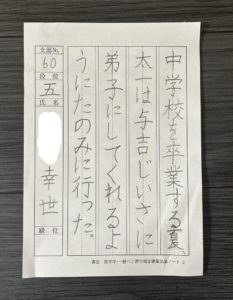 中学校を卒業する夏、
太一は与吉じいさに
弟子にしてくれるよ
うにたのみに行った。
支部No.
60
段位
五
氏名
幸世
級位